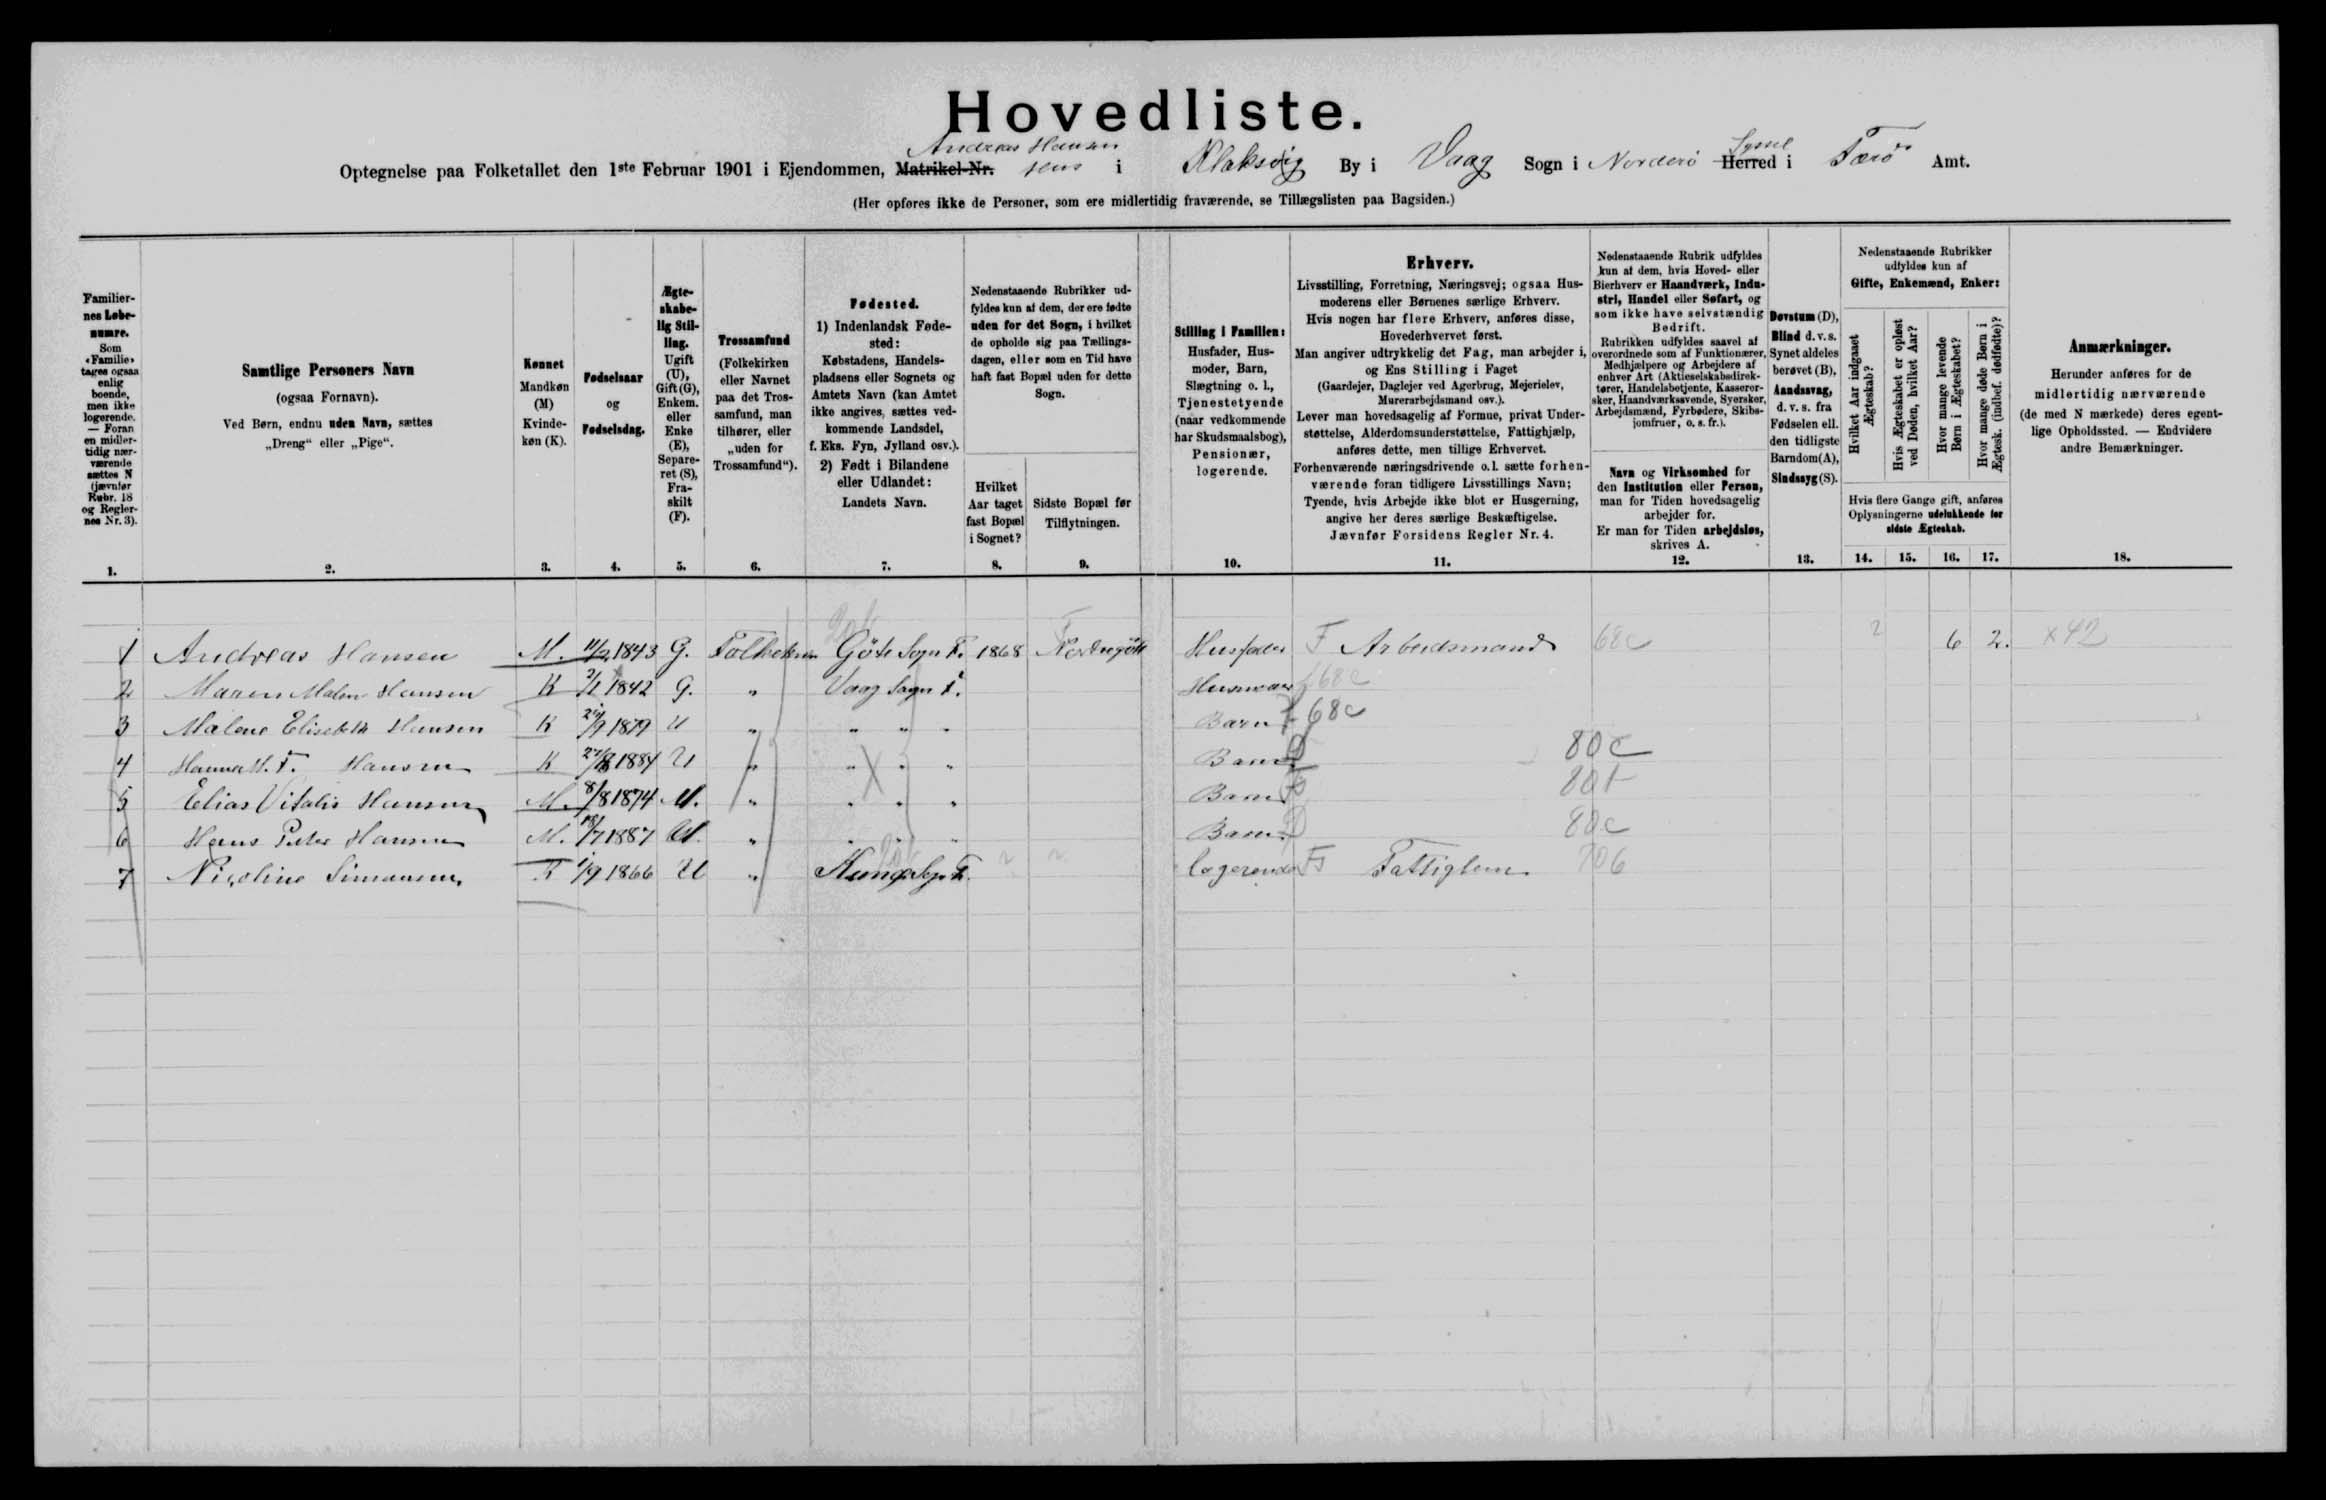 Hovedliste.
Andreas Hansen Syssel
Optegnelse paa Folketallet den 1ste Februar 1901 i Ejendommen, Matrikel-Nr. Hus i Klaksvig By i Vaag Sogn i Norderö Herred i Færö Amt.
(Her opføres ikke de Personer, som ere midlertidig fraværende, se Tillægslisten paa Bagsiden.)
Familiernes Løbenumre.
Som «Familie» tages ogsaa enlig boende, men ikke logerende. — Foran en midlertidig nærværende sættes N (jævnfør Rubr. 18 og Reglernes Nr. 3).
1.
Samtlige Personers Navn
(ogsaa Fornavn).
Ved Børn, endnu uden Navn, sættes
„Dreng“ eller „Pige“.
2.
Kønnet
Mandkøn
(M)
Kvindekøn (K).
3.
Fødselsaar
og
Fødselsdag.
4.
Ægteskabelig Stilling.
Ugift (U), Gift (G), Enkem. eller Enke (E), Separeret (S), Fraskilt (F).
5.
Trossamfund
(Folkekirken eller Navnet paa det Trossamfund, man tilhører, eller „uden for Trossamfund“).
6.
Fødested.
1) Indenlandsk Fødested:
Købstadens, Handelspladsens eller Sognets og Amtets Navn (kan Amtet ikke angives, sættes vedkommende Landsdel, f. Eks. Fyn, Jylland osv.).
2) Født i Bilandene eller Udlandet:
Landets Navn.
7.
Nedenstaaende Rubrikker udfyldes kun af dem, der ere fødte uden for det Sogn, i hvilket de opholde sig paa Tællingsdagen, eller som en Tid have haft fast Bopæl uden for dette Sogn.
Hvilket Aar taget fast Bopæl i Sognet?
8.
Sidste Bopæl før Tilflytningen.
9.
Stilling i Familien:
Husfader, Husmoder, Barn, Slægtning o. l., Tjenestetyende (naar vedkommende har Skudsmaalsbog), Pensionær, logerende.
10.
Erhverv.
Livsstilling, Forretning, Næringsvej; ogsaa Husmoderens eller Børnenes særlige Erhverv.
Hvis nogen har flere Erhverv, anføres disse, Hovederhvervet først.
Man angiver udtrykkelig det Fag, man arbejder i, og Ens Stilling i Faget
(Gaardejer, Daglejer ved Agerbrug, Mejerielev, Murerarbejdsmand osv.).
Lever man hovedsagelig af Formue, privat Understøttelse, Alderdomsunderstøttelse, Fattighjælp, anføres dette, men tillige Erhvervet.
Forhenværende næringsdrivende o. l. sætte forhenværende foran tidligere Livsstillings Navn;
Tyende, hvis Arbejde ikke blot er Husgerning, angive her deres særlige Beskæftigelse.
Jævnfør Forsidens Regler Nr. 4.
11.
Nedenstaaende Rubrik udfyldes kun af dem, hvis Hoved- eller Bierhverv er Haandværk, Industri, Handel eller Søfart, og som ikke have selvstændig Bedrift.
Rubrikken udfyldes saavel af overordnede som af Funktionærer, Medhjælpere og Arbejdere af enhver Art (Aktieselskabsdirektører, Handelsbetjente, Kasserorsker, Haandværkssvende, Syersker, Arbejdsmænd, Fyrbødere, Skibsjomfruer, o. s. fr.).
Navn og Virksomhed for den Institution eller Person, man for Tiden hovedsagelig arbejder for.
Er man for Tiden arbejdsløs, skrives A.
12.
Døvstum (D), Blind d. v. s. Synet aldeles berøvet (B), Aandssvag, d. v. s. fra Fødselen ell. den tidligste Barndom (A), Sindssyg (S).
13.
Nedenstaaende Rubrikker udfyldes kun af
Gifte, Enkemænd, Enker:
Hvilket Aar indgaaet Ægteskab?
Hvis Ægteskabet er opløst ved Døden, hvilket Aar?
Hvor mange levende Børn i Ægteskabet?
Hvor mange døde Børn i Ægtesk. (indbef. dødfødte)?
Hvis flere Gange gift, anføres Oplysningerne udelukkende for sidste Ægteskab.
14. 15. 16. 17.
Anmærkninger.
Herunder anføres for de midlertidig nærværende (de med N mærkede) deres egentlige Opholdssted. — Endvidere andre Bemærkninger.
18.
1 Andreas Hansen M. 11/2 1843 G. Folkekirken Göte Sogn F. 1868 Nordregöte Husfader F Arbeidsmand 68c 2 6 2. x42
2 Maren Malene Hansen K 2/1 1842 G. „ Vaag Sogn F. Husmoder f 68c
3 Malene Elisebeth Hansen K 29/9 1879 U „ „ „ „ Barn f 68c
4 Hanna M. F. Hansen K 1884 U „ „ „ „ Barn 80c
5 Elias Vitalis Hansen M. 8/8 1874 U. „ „ „ „ Barn 80f
6 Hans Peter Hansen M. 18/7 1887 U. „ „ „ „ Barn 80c
7 Nicoline Simonsen K 1/9 1866 U „ Kunø Sogn F. logerende Fs Fattiglem 706